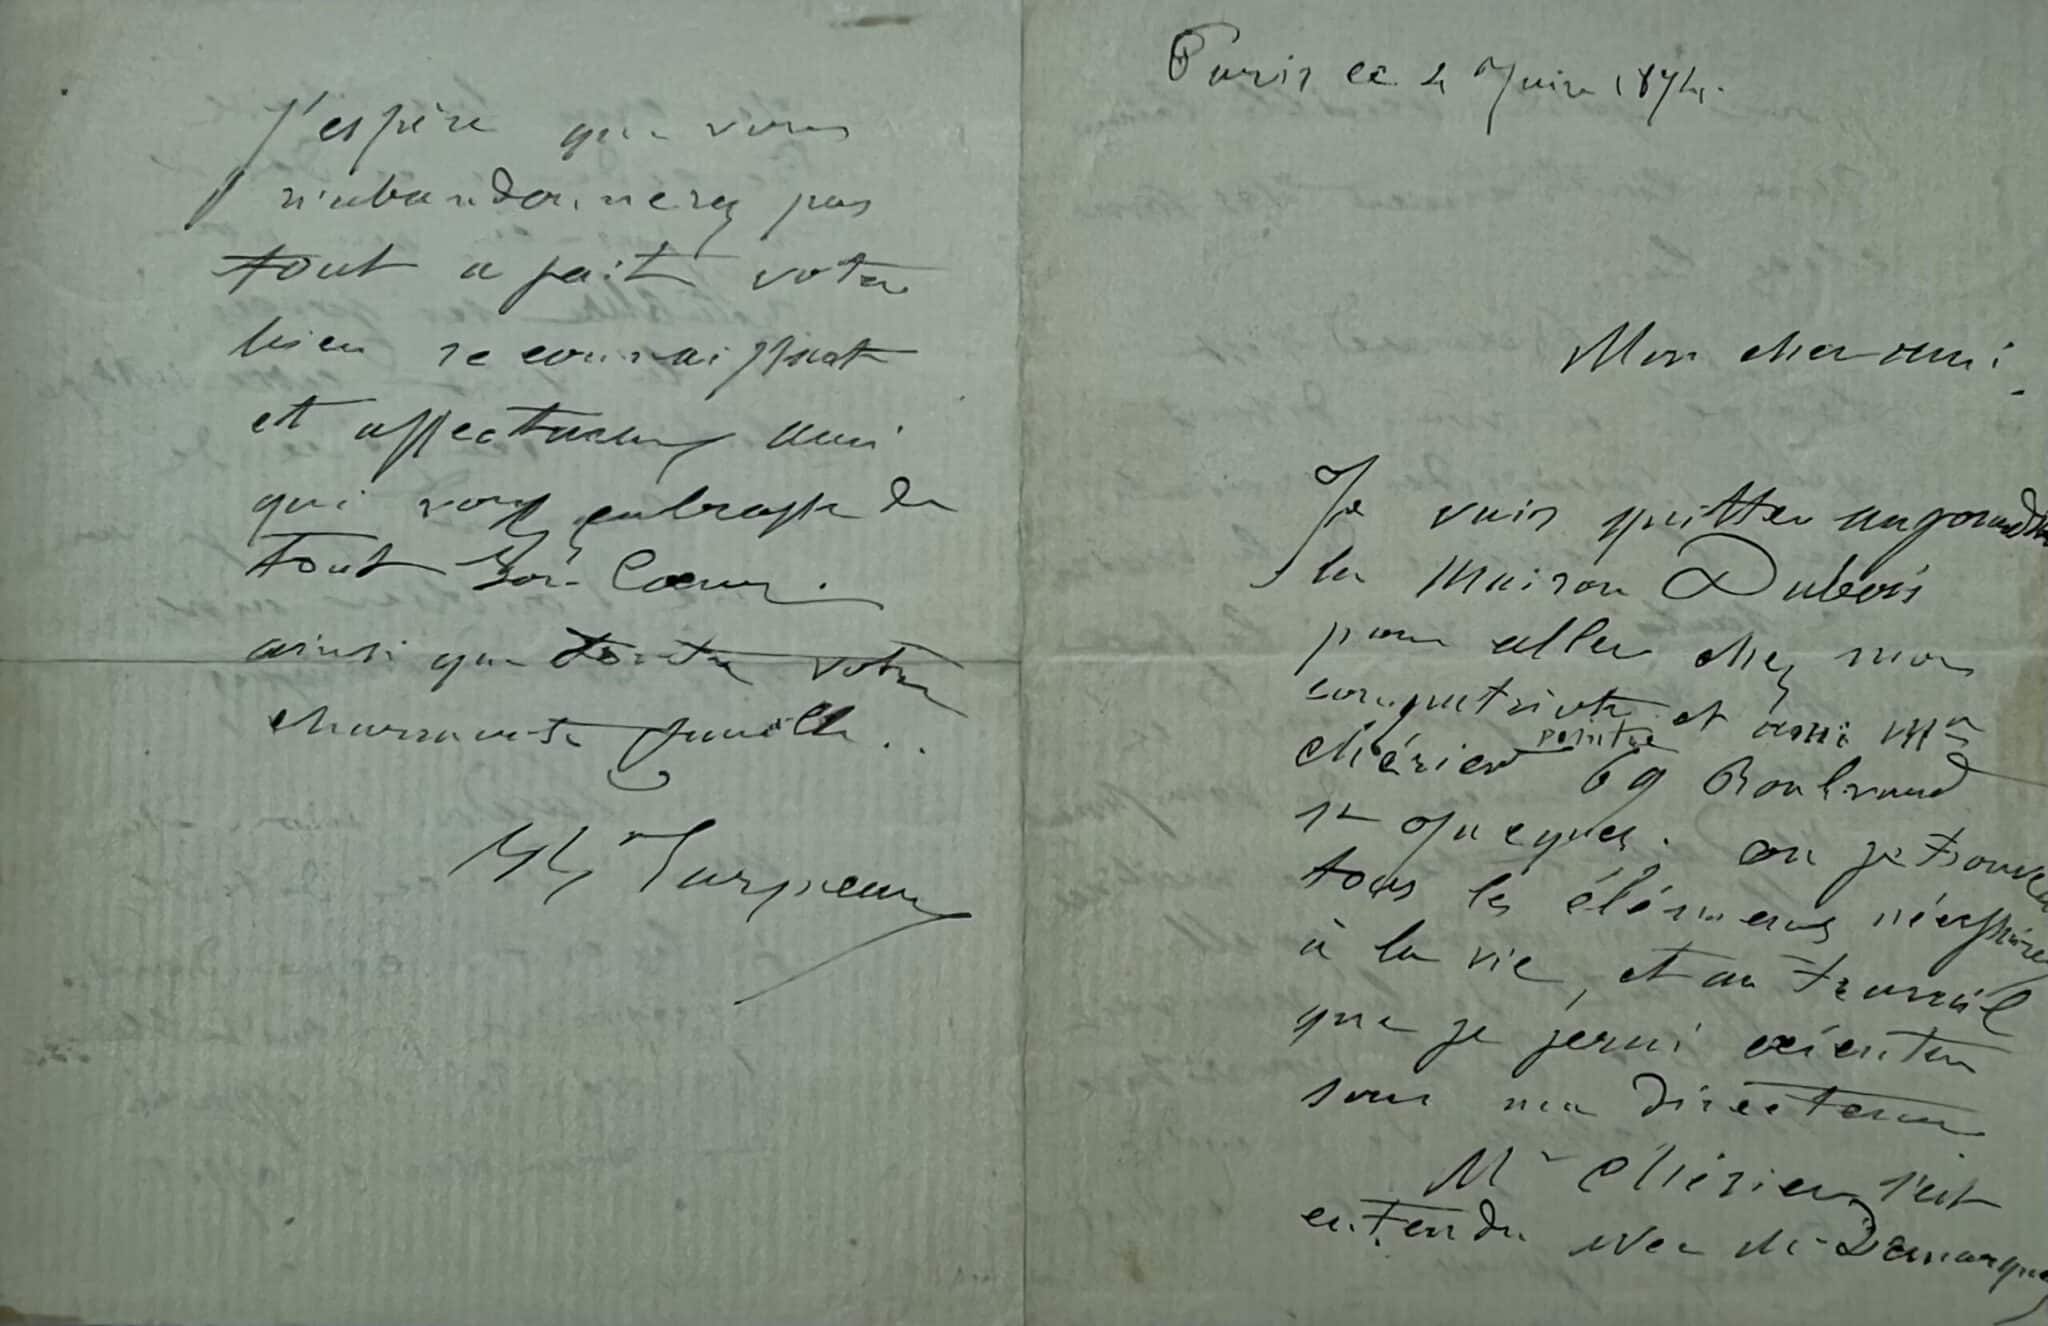 Paris ce 4 Juin 1874.
Mon cher ami.
Je vais quitter aujourd'hui
la Maison Dubois
pour aller chez mon
compatriote et ami Mr
Chérier peintre 69 Boulevard
St Jacques. ou je trouve
tous les élémens nécessaires
à la vie, et au travail
que je ferai exécuter
sous ma direction
Mr Chérier s'est
entendu avec Mr Demarquay
J'espère que vous
n'abandonnerez pas
tout a fait votre
bien reconnaissant
et affectueux ami
qui vous embrasse de
tout son Coeur.
ainsi que toute votre
charmante famille..
Bte Carpeaux